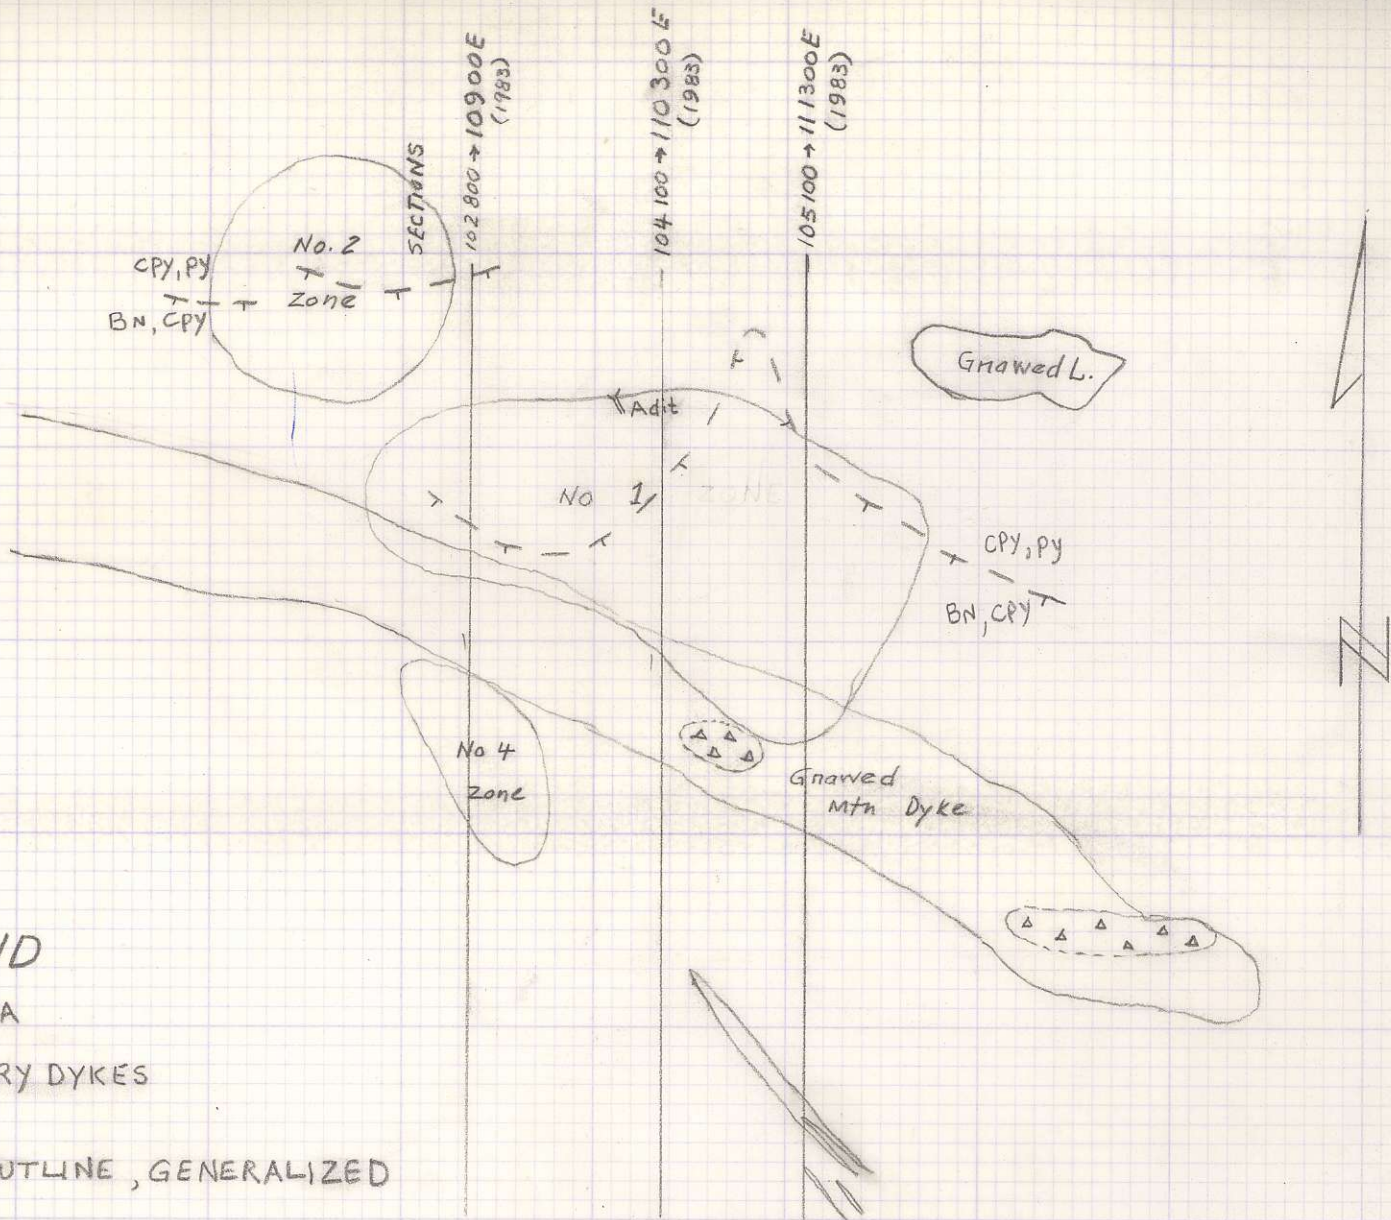 SECTIONS
102800→10900E
(1983)
104100→110300E
(1983)
105100→111300E
(1983)
No. 2
Zone
CPY, PY
BN, CPY
Gnawed L.
Adit
No 1
ZONE
CPY, PY
BN, CPY
No 4
Zone
Gnawed
Mtn Dyke
N
ND
A
RY DYKES
UTLINE, GENERALIZED